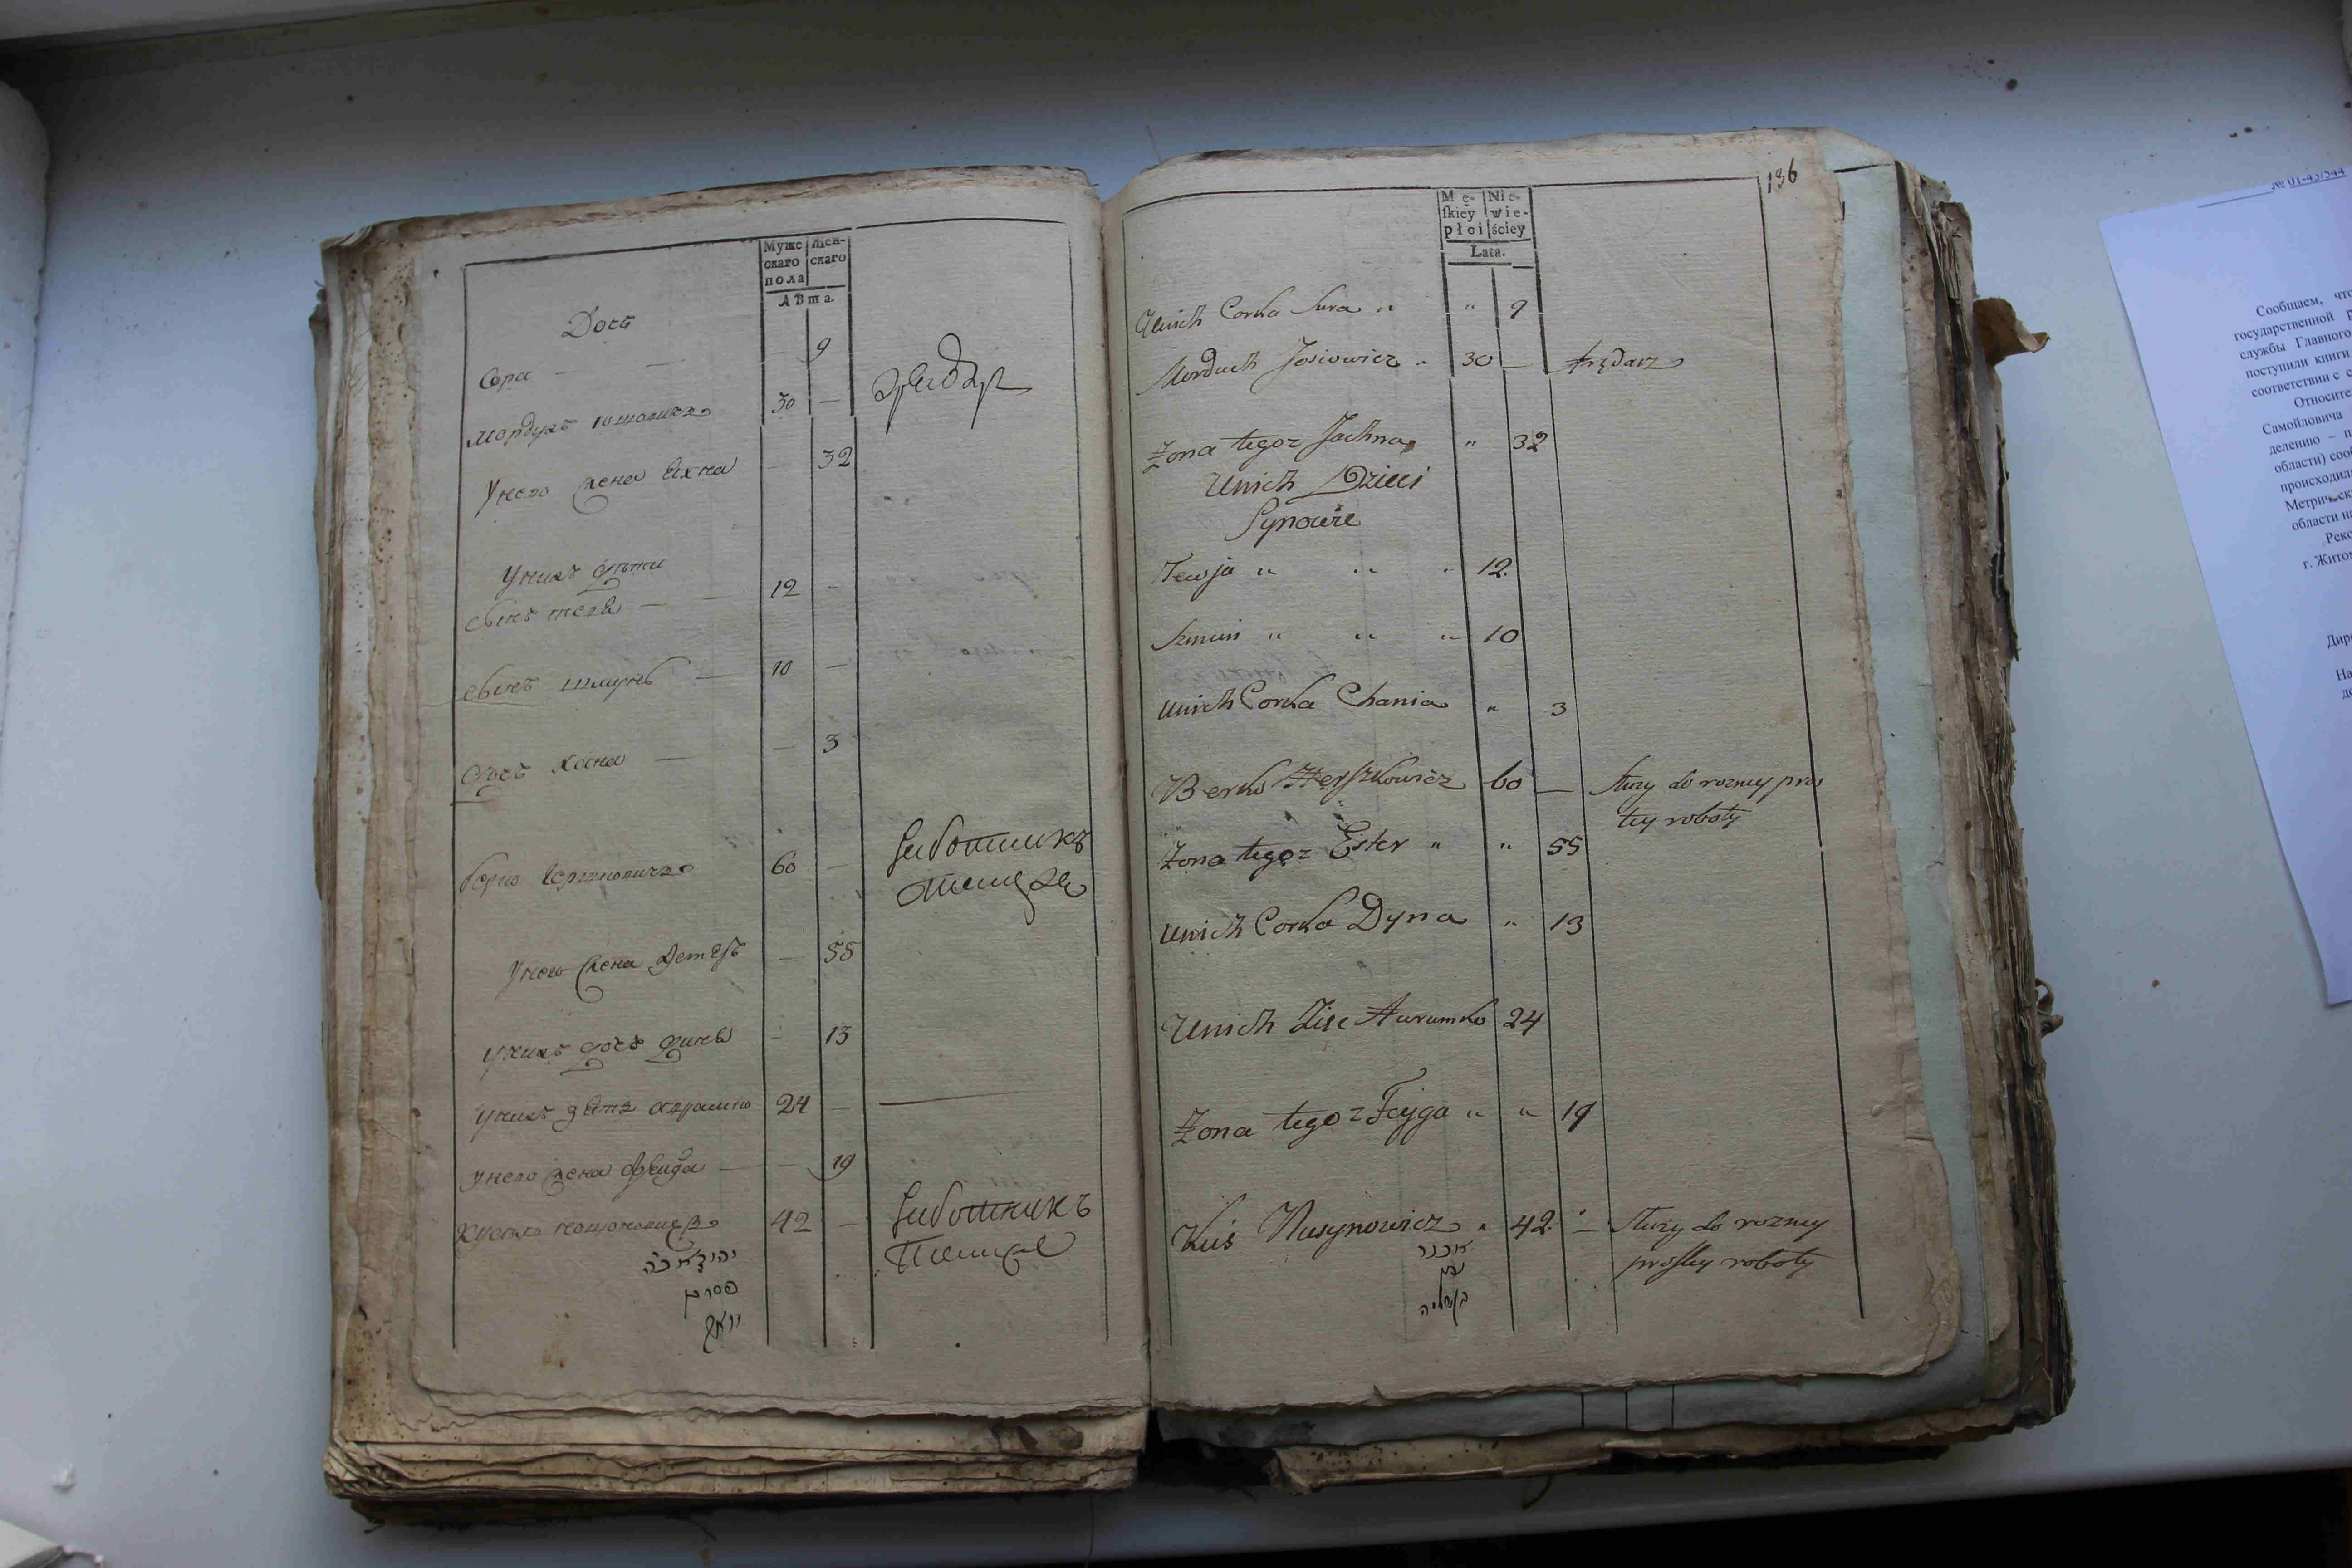 Муже Жен-
скаго скаго
пола
Лѣта.
Дочь
Сора — — — 9
Мордухъ Iошовичъ 30 — Орендар
У него жена Ехна — 32
У нихъ дѣти
сынъ тевя — — 12 —
сынъ шмунъ — 10 —
Дочь хана — — 3
Берко Гершковичъ 60 —
У него жена Эстеръ — 55
У нихъ дочь дина — 13
У нихъ зять Аврамко 24 —
У него жена Фейга — — 19
42 —
136
Mę- Nie-
skiey wie-
płci ściey
Lata.
Unich Corka Sura " " 9
Morduch Josiowicz " 30 — Arędarz
Zona tegoz Jachna " 32
Unich Dzieci
Synowie
Tewja " " " 12.
Szmun " " " 10
Unich Corka Chania " 3
Berko Herszkowicz 60 — służy do rozney pros
tey roboty
Zona tegoz Ester " " 55
Unich Corka Dyna " 13
Unich Zięc Awramko 24
Zona tegoz Fejga " " 19
Kuś Nusynowicz " 42. — Służy do rozney
prostey roboty
№ 01-43/544
Сообщаем, что
государственной р
службы Главного
поступили книги
соответствии с с
Относите
Самойловича
делению – п
области) сооб
происходил
Метрическ
области на
Реко
г. Житом
Дире
На
до